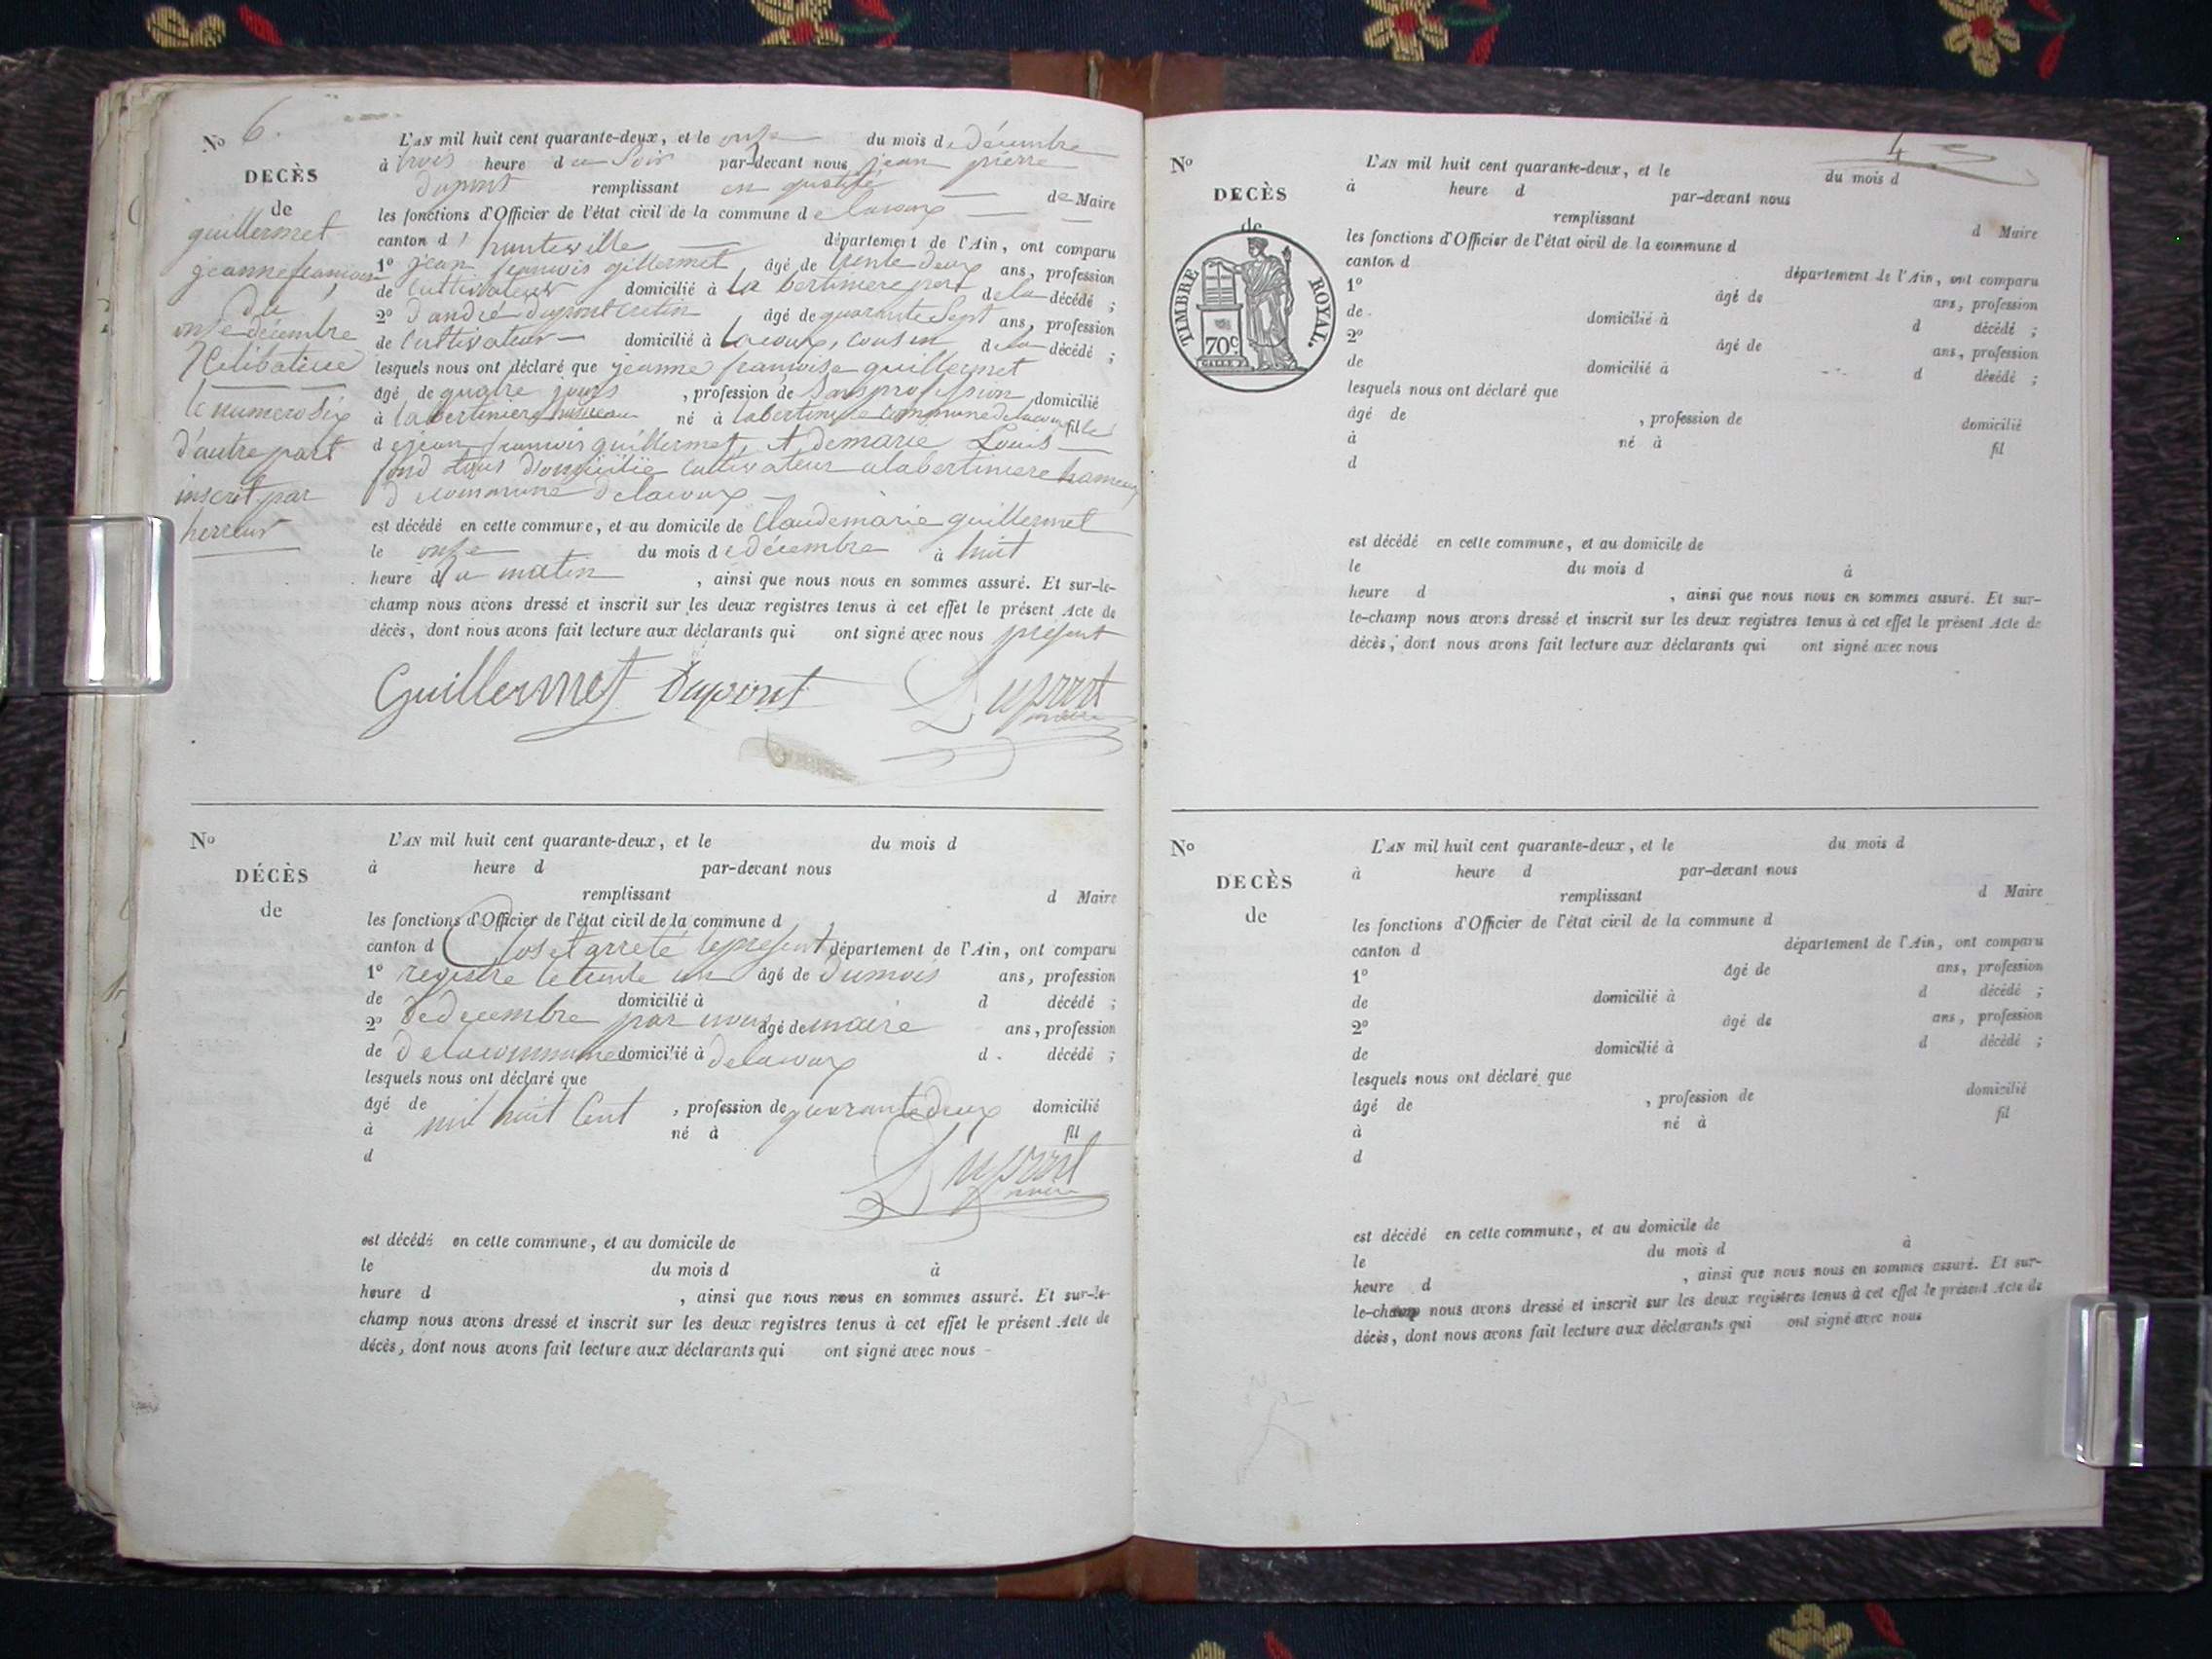 No 6.
DECÈS
de
guillermet
jeanne françoise
du
onze décembre
Célibataire
le numero six
d'autre part
inscrit par
herreur
L'AN mil huit cent quarante-deux, et le onze du mois de décembre
à trois heure du Soir par-devant nous jean pierre
Dupont remplissant en qualité de Maire
les fonctions d'Officier de l'état civil de la commune de lacoux
canton d'hauteville département de l'Ain, ont comparu
1° jean françois gillermet âgé de trente deux ans, profession
de Cultivateur domicilié à La bertiniere pere de la décédé ;
2° D'andré dupont cretin âgé de quarante Sept ans, profession
de Cultivateur domicilié à Lacoux, cousin de la décédé ;
lesquels nous ont déclaré que jeanne françoise guillermet
âgé de quatre jours , profession de Sans profession domicilié
à labertiniere hameau né à labertiniere commune de lacoux fille
de jean françois guillermet, et de marie Louis
fond tous domicilié Cultivateur a labertiniere hameau
commune de lacoux
est décédé en cette commune, et au domicile de Claude marie guillermet
le onze du mois de décembre à huit
heure du matin , ainsi que nous nous en sommes assuré. Et sur-le-
champ nous avons dressé et inscrit sur les deux registres tenus à cet effet le présent Acte de
décès, dont nous avons fait lecture aux déclarants qui ont signé avec nous présent
Guillermet Dupont Dupont
maire
No
DÉCÈS
de
L'AN mil huit cent quarante-deux, et le du mois d
à heure d par-devant nous
remplissant d Maire
les fonctions d'Officier de l'état civil de la commune d
canton d Clos et arreté le present département de l'Ain, ont comparu
1° registre le trente un âgé de Du mois ans, profession
de domicilié à d décédé ;
2° De decembre par nous âgé de maire ans, profession
de De la commune domicilié à De lacoux d décédé ;
lesquels nous ont déclaré que
âgé de mil huit Cent , profession de quarante deux domicilié
à né à fil
d
Dupont
maire
est décédé en cette commune, et au domicile de
le du mois d à
heure d , ainsi que nous nous en sommes assuré. Et sur-le-
champ nous avons dressé et inscrit sur les deux registres tenus à cet effet le présent Acte de
décès, dont nous avons fait lecture aux déclarants qui ont signé avec nous
No
DECÈS
de
TIMBRE ROYAL.
70c
L'AN mil huit cent quarante-deux, et le du mois d
à heure d par-devant nous
remplissant d Maire
les fonctions d'Officier de l'état civil de la commune d
canton d département de l'Ain, ont comparu
1° âgé de ans, profession
de domicilié à d décédé ;
2° âgé de ans, profession
de domicilié à d décédé ;
lesquels nous ont déclaré que
âgé de , profession de domicilié
à né à fil
d
est décédé en cette commune, et au domicile de
le du mois d à
heure d , ainsi que nous nous en sommes assuré. Et sur-
le-champ nous avons dressé et inscrit sur les deux registres tenus à cet effet le présent Acte de
décès, dont nous avons fait lecture aux déclarants qui ont signé avec nous
No
DECÈS
de
L'AN mil huit cent quarante-deux, et le du mois d
à heure d par-devant nous
remplissant d Maire
les fonctions d'Officier de l'état civil de la commune d
canton d département de l'Ain, ont comparu
1° âgé de ans, profession
de domicilié à d décédé ;
2° âgé de ans, profession
de domicilié à d décédé ;
lesquels nous ont déclaré que
âgé de , profession de domicilié
à né à fil
d
est décédé en cette commune, et au domicile de
le du mois d à
heure d , ainsi que nous nous en sommes assuré. Et sur-
le-champ nous avons dressé et inscrit sur les deux registres tenus à cet effet le présent Acte de
décès, dont nous avons fait lecture aux déclarants qui ont signé avec nous